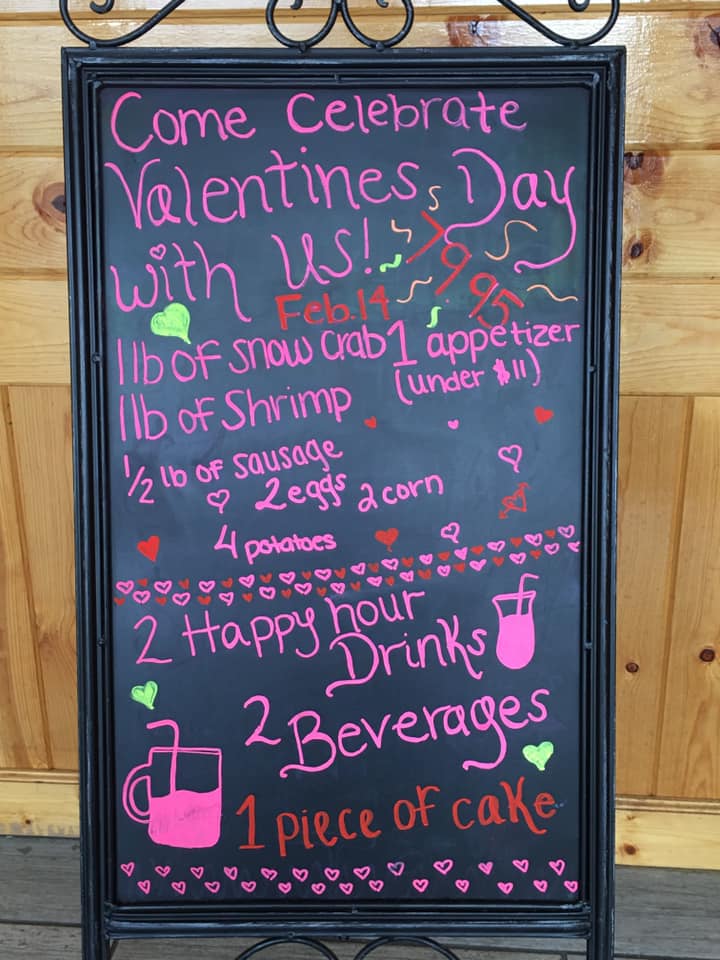 Come Celebrate
Valentines Day
with US!
79.95
Feb.14
1lb of snow crab
1 appetizer
(under $11)
1lb of Shrimp
1/2 lb of sausage
2 eggs 2 corn
4 potatoes
2 Happy hour
Drinks
2 Beverages
1 piece of cake